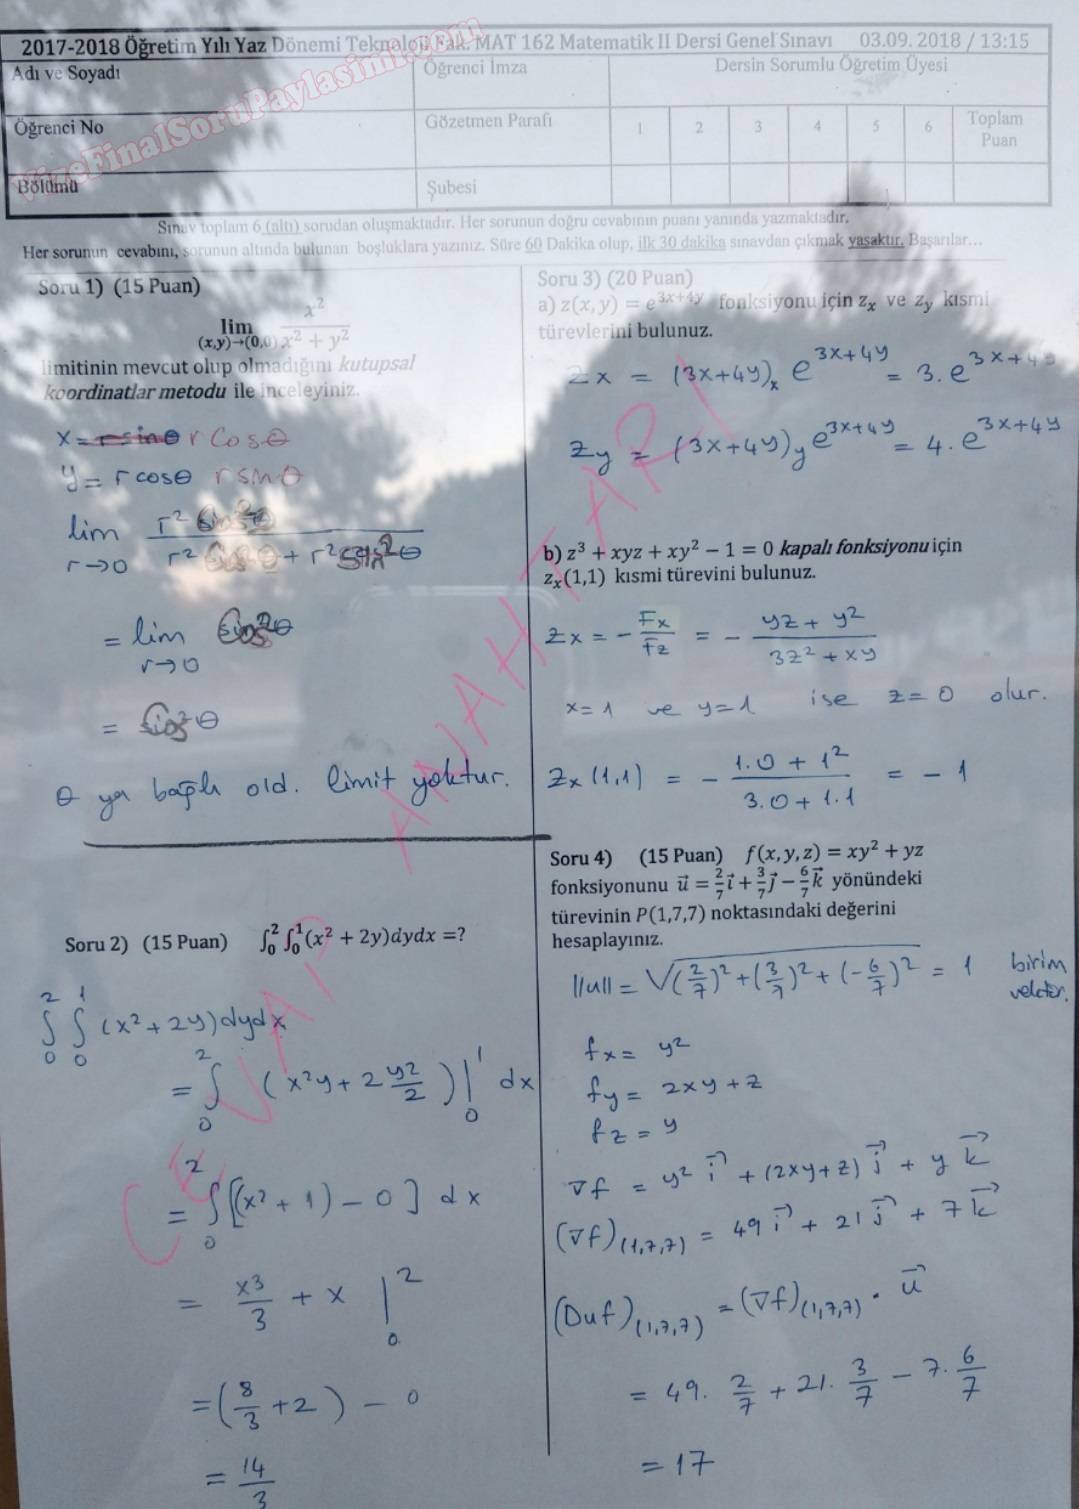 VizeFinalSoruPaylasimi.com
2017-2018 Öğretim Yılı Yaz Dönemi Teknoloji Fak. MAT 162 Matematik II Dersi Genel Sınavı 03.09. 2018 / 13:15
Adı ve Soyadı
Öğrenci İmza
Dersin Sorumlu Öğretim Üyesi
Öğrenci No
Gözetmen Parafı
1 2 3 4 5 6 Toplam Puan
Bölümü
Şubesi
Sınav toplam 6 (altı) sorudan oluşmaktadır. Her sorunun doğru cevabının puanı yanında yazmaktadır.
Her sorunun cevabını, sorunun altında bulunan boşluklara yazınız. Süre 60 Dakika olup, ilk 30 dakika sınavdan çıkmak yasaktır. Başarılar...
CEVAP ANAHTARI
Soru 1) (15 Puan)
lim (x,y)→(0,0) x²/(x² + y²)
limitinin mevcut olup olmadığını kutupsal
koordinatlar metodu ile inceleyiniz.
x = r cosθ
y = r cosθ r sinθ
lim r→0
= lim r→0 Cos²θ
= Cos²θ
θ ya bağlı old. limit yoktur.
Soru 2) (15 Puan) ∫₀² ∫₀¹(x² + 2y)dydx =?
∫₀² ∫₀¹ (x² + 2y) dydx
= ∫₀² (x²y + 2 y²/2)|₀¹ dx
= ∫₀² [(x² + 1) – 0] dx
= x³/3 + x |₀²
= (8/3 + 2) – 0
= 14/3
Soru 3) (20 Puan)
a) z(x, y) = e³ˣ⁺⁴ʸ fonksiyonu için zₓ ve z_y kısmi
türevlerini bulunuz.
zx = (3x+4y)ₓ e³ˣ⁺⁴ʸ = 3.e³ˣ⁺⁴ʸ
zy = (3x+4y)y e³ˣ⁺⁴ʸ = 4.e³ˣ⁺⁴ʸ
b) z³ + xyz + xy² − 1 = 0 kapalı fonksiyonu için
zₓ(1,1) kısmi türevini bulunuz.
zx = − Fx/Fz = − (yz + y²)/(3z² + xy)
x=1 ve y=1 ise z=0 olur.
zx (1,1) = − (1.0 + 1²)/(3.0 + 1.1) = − 1
Soru 4) (15 Puan) f(x, y, z) = xy² + yz
fonksiyonunu u⃗ = 2/7 i⃗ + 3/7 j⃗ − 6/7 k⃗ yönündeki
türevinin P(1,7,7) noktasındaki değerini
hesaplayınız.
||u|| = √((2/7)² + (3/7)² + (−6/7)²) = 1 birim vektör.
fx = y²
fy = 2xy + z
fz = y
∇f = y² i⃗ + (2xy+z) j⃗ + y k⃗
(∇f)(1,7,7) = 49 i⃗ + 21 j⃗ + 7 k⃗
(Duf)(1,7,7) = (∇f)(1,7,7) · u⃗
= 49. 2/7 + 21. 3/7 – 7. 6/7
= 17